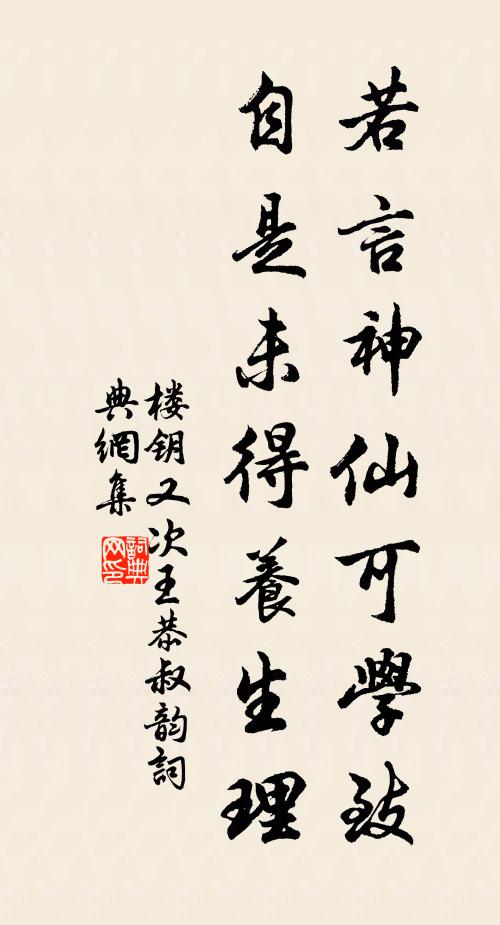 若言神仙可學致
自是未得養生理
楼钥又次王恭叔韵詞
典網集
詞典网印